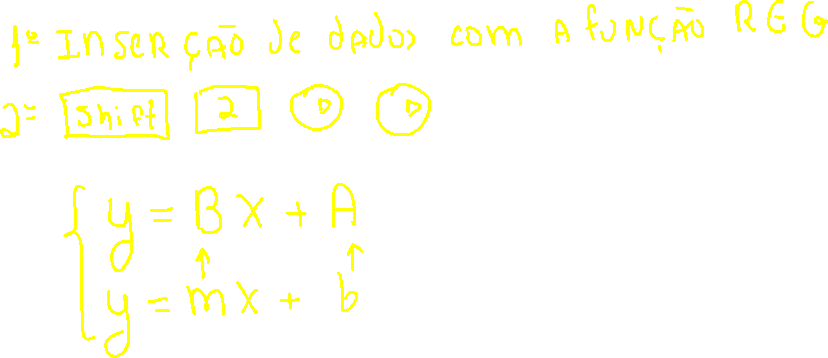 1º Inserção de dados com a função REG
2º Shift 2 ▷ ▷
y = Bx + A
↑ ↑
y = mx + b